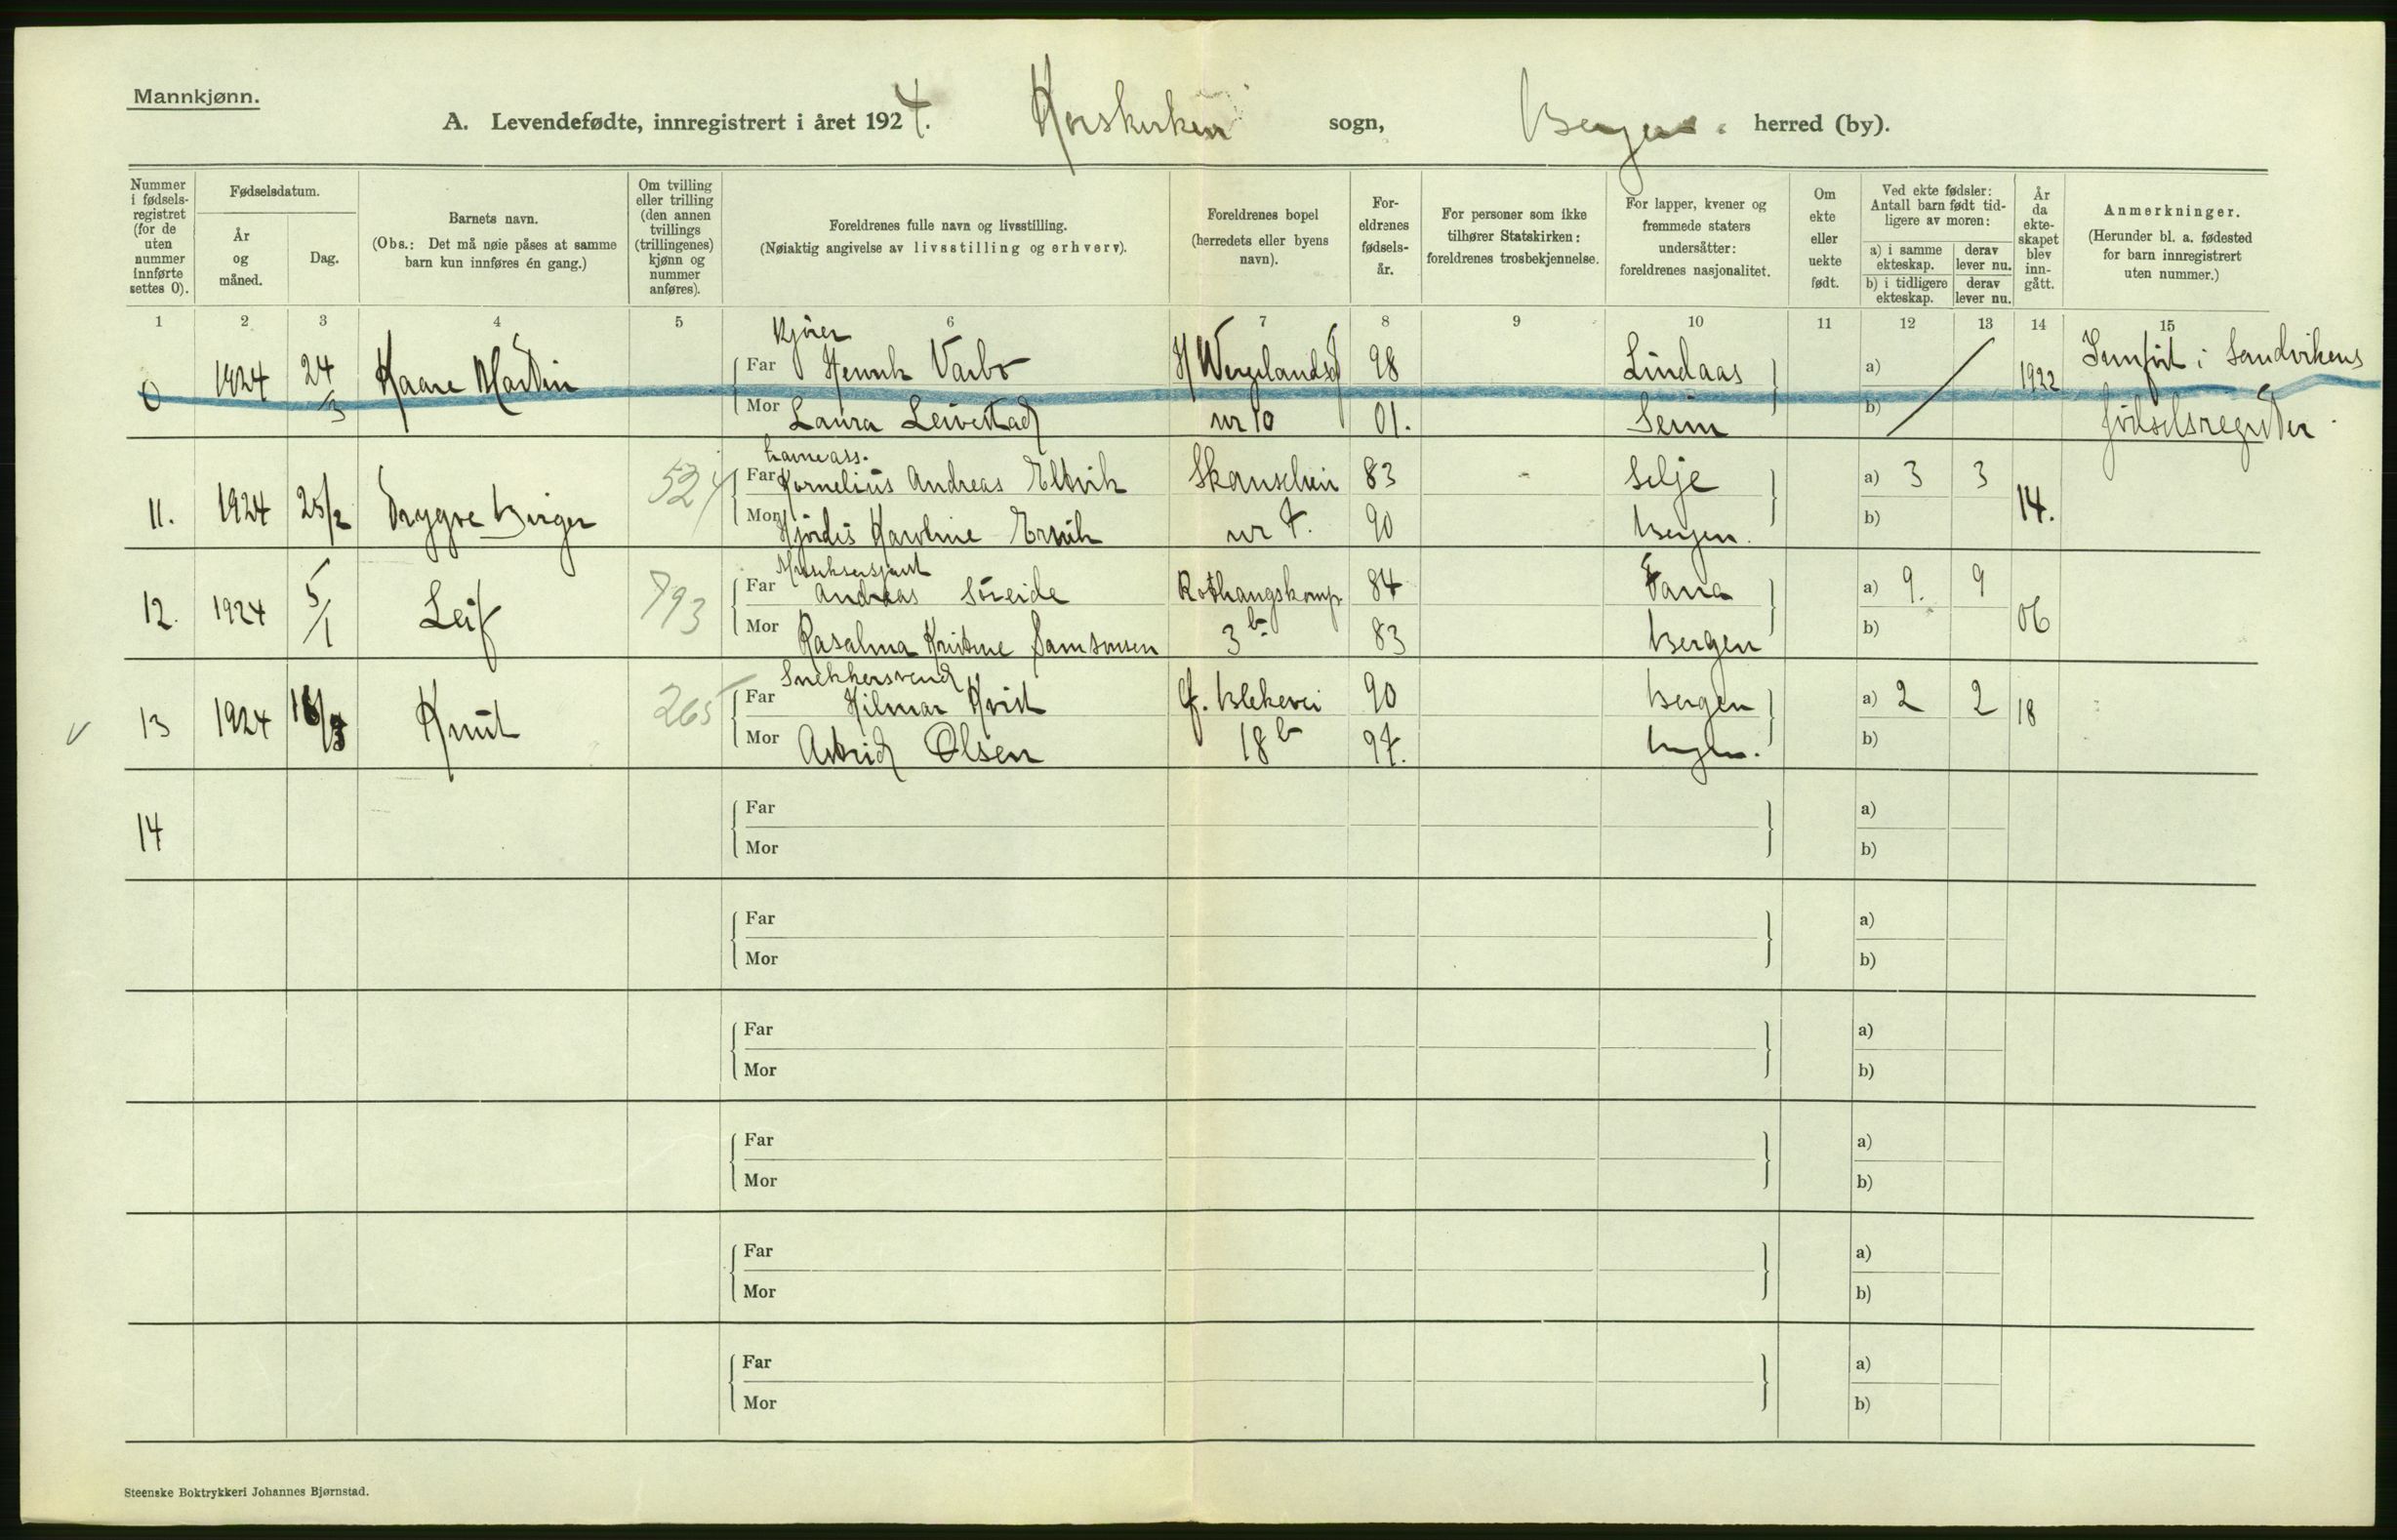 Mannkjønn.
A. Levendefødte, innregistrert i året 1924. Korskirken sogn, Bergens herred (by).
Nummer i fødsels-registret (for de uten nummer innførte settes 0).
Fødselsdatum.
År og måned.
Dag.
Barnets navn.
(Obs.: Det må nøie påses at samme barn kun innføres én gang.)
Om tvilling eller trilling (den annen tvillings (trillingenes) kjønn og nummer anføres).
Foreldrenes fulle navn og livsstilling.
(Nøiaktig angivelse av livsstilling og erhverv).
Foreldrenes bopel (herredets eller byens navn).
For-eldrenes fødsels-år.
For personer som ikke tilhører Statskirken: foreldrenes trosbekjennelse.
For lapper, kvener og fremmede staters undersåtter: foreldrenes nasjonalitet.
Om ekte eller uekte født.
Ved ekte fødsler: Antall barn født tid-ligere av moren:
a) i samme ekteskap.
derav lever nu.
b) i tidligere ekteskap.
derav lever nu.
År da ekte-skapet blev inn-gått.
Anmerkninger.
(Herunder bl. a. fødested for barn innregistrert uten nummer.)
1 2 3 4 5 6 7 8 9 10 11 12 13 14 15
Kjörer
0 1924 24/3 Kaare Martin Far Henrik Varbo H Wergelandsg 98 Lindaas a) 1922 Innfört i Sandvikens
Mor Laura Leivestad nr 10 01. Seim b) födselsregister
11. 1924 25/2 Trygve Birger 524 Far Kornelius Andreas Eltvik Skanselien 83 Selje a) 3 3 14.
Mor Hjördis Karoline nr 7. 90 Bergen. b)
12. 1924 5/1 Leif 793 Far Andreas Söreide Rothaugskomp 84 Fana a) 9. 9 06
Mor Rasalina Kristine Samsonsen 3b 83 Bergen b)
Snekkersvend
13 1924 16/3 Knut 265 Far Hilmar Kvist Blekevei 90 Bergen a) 2 2 18
Mor Astrid Olsen 18b 97. Bergen. b)
14 Far a)
Mor b)
Far a)
Mor b)
Far a)
Mor b)
Far a)
Mor b)
Far a)
Mor b)
Far a)
Mor b)
Steenske Boktrykkeri Johannes Bjørnstad.